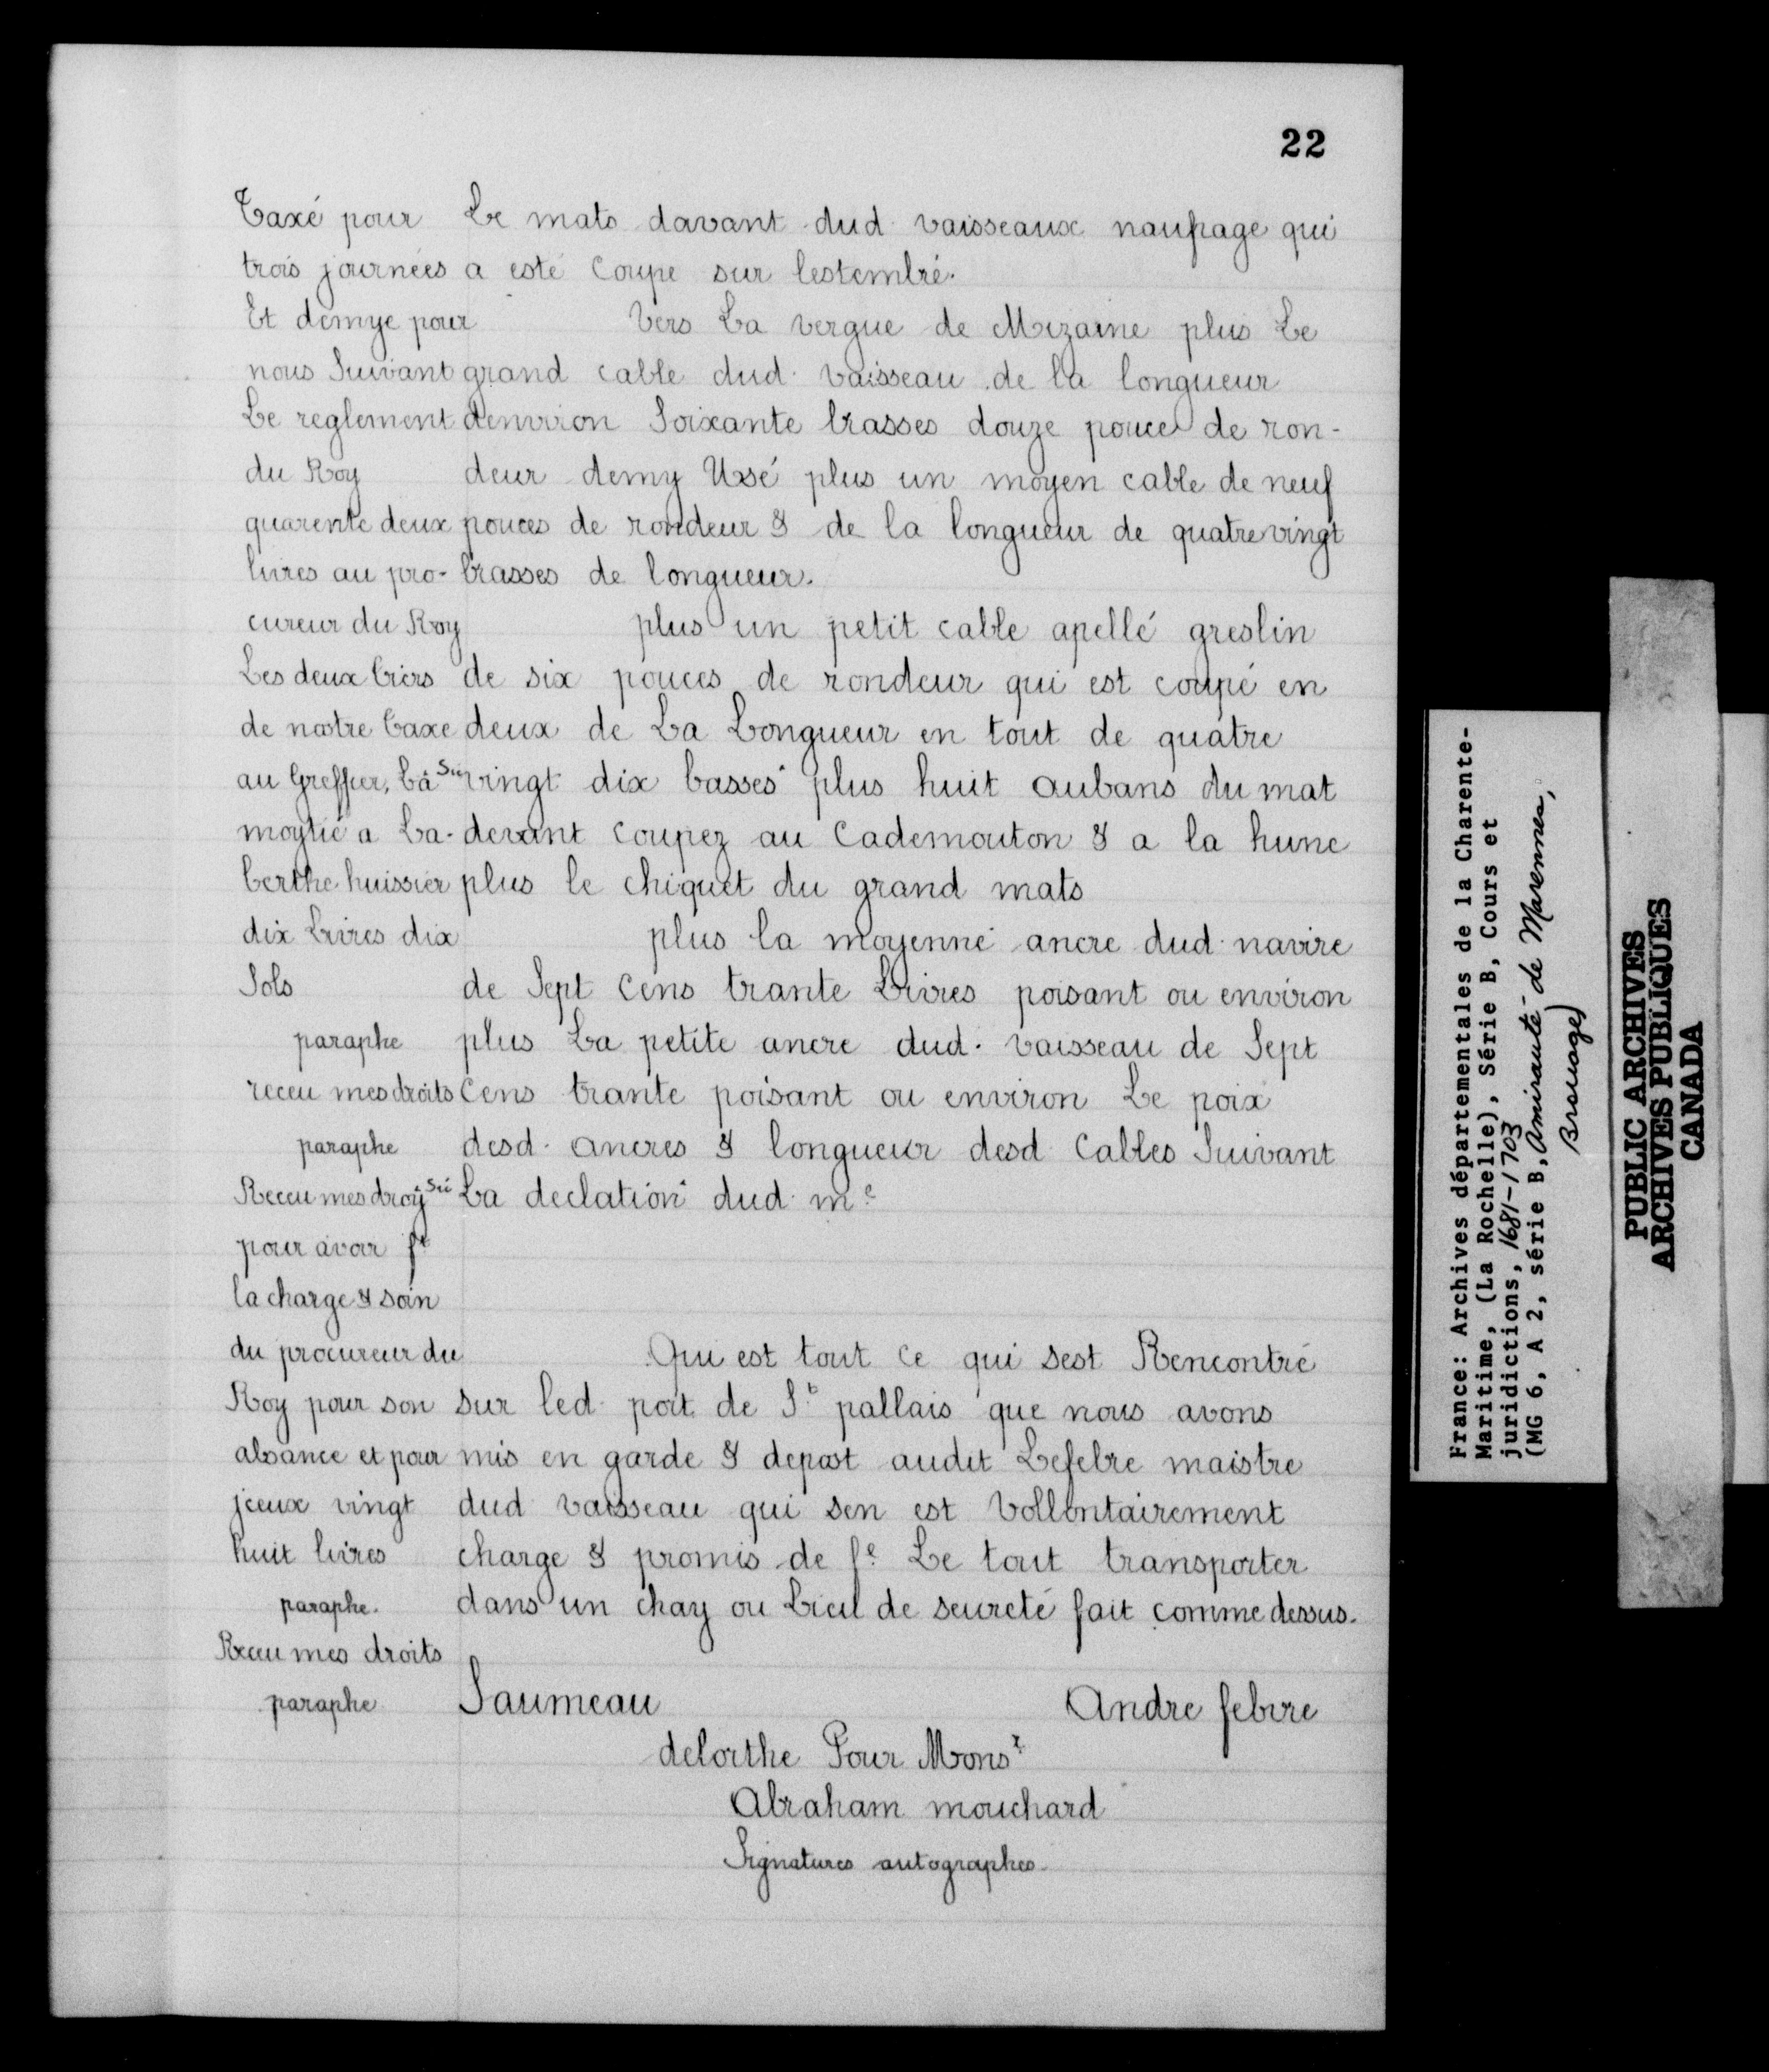 22
Taxé pour
trois journées
Et demye pour
nous Suivant
Le reglement
du Roy
quarente deux
livres au pro-
cureur du Roy
Les deux tiers
de nostre taxe
au Greffier, La Sic
moytié a La-
berthe huissier
dix Livres dix
Sols
paraphe
receu mes droits
paraphe
Receu mes droy Sic
pour avoir ft
la charge & soin
du procureur du
Roy pour son
absance et pour
jceux vingt
huit livres
paraphe.
Receu mes droits
paraphe
Le mats davant dud vaisseaux naufrage qui
a esté Coupe sur lestembré.
Vers La vergue de Mizaine plus Le
grand cable dud. vaisseau de la longueur
denviron Soixante brasses douze pouces de ron-
deur demy Usé plus un moyen cable de neuf
pouces de rondeur & de la longueur de quatrevingt
brasses de longueur.
plus un petit cable apellé greslin
de six pouces de rondeur qui est coupé en
deux de La Longueur en tout de quatre
vingt dix basses plus huit aubans du mat
devant coupez au Cademouton & a la hune
plus le chiquet du grand mats
plus la moyenne ancre dud. navire
de Sept Cens trante Livres poisant ou environ
plus La petite ancre dud. vaisseau de Sept
Cens trante poisant ou environ Le poix
desd. ancres & longueur desd Cables Suivant
La declation dud. me
Qui est tout ce qui sest Rencontré
sur led. port de St pallais que nous avons
mis en garde & depost audit Lefebre maistre
dud vaisseau qui sen est Vollontairement
charge & promis de fe Le tout transporter
dans un chay ou Lieu de seureté fait comme dessus.
Saumeau
Andre febvre
delorthe Pour Monsr
Abraham mouchard
Signatures autographes
France: Archives départementales de la Charente-
Maritime, (La Rochelle), Série B, Cours et
juridictions, 1681-1703
(MG 6, A 2, série B, Amirauté de Marennes,
Brouage)
PUBLIC ARCHIVES
ARCHIVES PUBLIQUES
CANADA